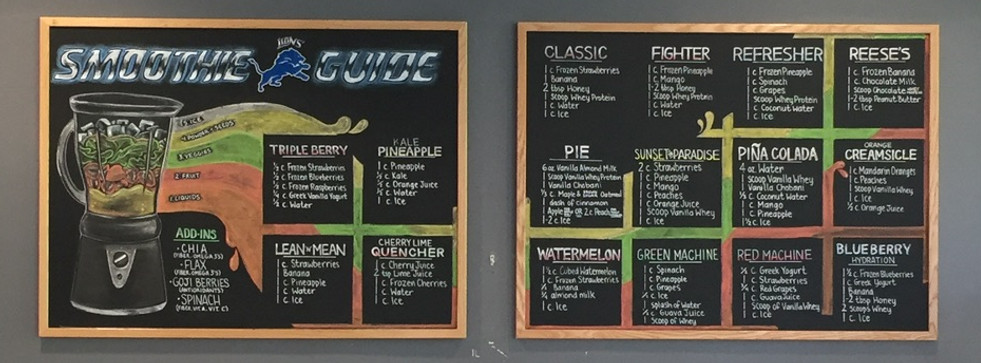 SMOOTHIE LIONS GUIDE
5. ICE
4. POWDER & SEEDS
3. VEGGIES
2. FRUIT
1. LIQUIDS
ADD-INS
• CHIA
(FIBER, OMEGA 3'S)
• FLAX
(FIBER, OMEGA 3'S)
• GOJI BERRIES
(ANTIOXIDANTS)
• SPINACH
(FIBER, VIT A, VIT C)
TRIPLE BERRY
½ c Frozen Strawberries
½ c Frozen Blueberries
½ c Frozen Raspberries
¼ c Greek Vanilla Yogurt
½ c Water
KALE
PINEAPPLE
1 c. Pineapple
½ c Kale
½ c Orange Juice
½ c Water
1 c. Ice
LEAN 'N' MEAN
1 c. Strawberries
1 Banana
1 c. Pineapple
1 c. Water
1 c. Ice
CHERRY LIME
QUENCHER
1 c Cherry Juice
1 tsp Lime Juice
1 c. Frozen Cherries
1 c. Water
1 c. Ice
CLASSIC
1 c Frozen Strawberries
1 Banana
2 tbsp Honey
1 scoop Whey Protein
1 c. Water
1 c. Ice
FIGHTER
1 c. Frozen Pineapple
1 c. Mango
1-2 tbsp Honey
1 scoop Whey Protein
1 c. Water
1 c. Ice
REFRESHER
1 c Frozen Pineapple
1 c Spinach
1 c. Grapes
1 scoop Whey Protein
1 c Coconut Water
1 c. Ice
REESE'S
1 c. Frozen Banana
1 c. Chocolate Milk
1 scoop Chocolate
1-2 tbsp Peanut Butter
1 c. Ice
PIE
6 oz. Vanilla Almond Milk
1 scoop Vanilla Whey Protein
1 Vanilla Chobani
Oatmeal
1 dash of Cinnamon
1 Apple OR 2 c. Peach
1-2 c. Ice
SUNSET IN PARADISE
2 c. Strawberries
1 c. Pineapple
1 c. Mango
1 c. Peaches
1 c. Orange Juice
1 scoop Vanilla Whey
1 c. Ice
PIÑA COLADA
4 oz. Water
1 scoop Vanilla Whey
1 Vanilla Chobani
½ c. Coconut Water
1 c. Mango
1 c. Pineapple
1½ c. Ice
ORANGE
CREAMSICLE
1 c. Mandarin Oranges
1 c. Peaches
1 scoop Vanilla Whey
1 c. Ice
½ c. Orange Juice
WATERMELON
1½ c. Cubed Watermelon
1 c. Frozen Strawberries
½ Banana
½ almond milk
1 c. Ice
GREEN MACHINE
1 c Spinach
1 c. Pineapple
1 c. Grapes
½ c. Ice
1 splash of Water
½ c Guava Juice
1 Scoop of Whey
RED MACHINE
½ c. Greek Yogurt
1 c. Strawberries
½ c. Red Grapes
1 c. Guava Juice
1 Scoop of Whey
1 c. Ice
BLUEBERRY
HYDRATION
1½ c. Frozen Blueberries
1 c. Greek Yogurt
1 Banana
2 tbsp Honey
2 scoops Whey
1 c. Ice